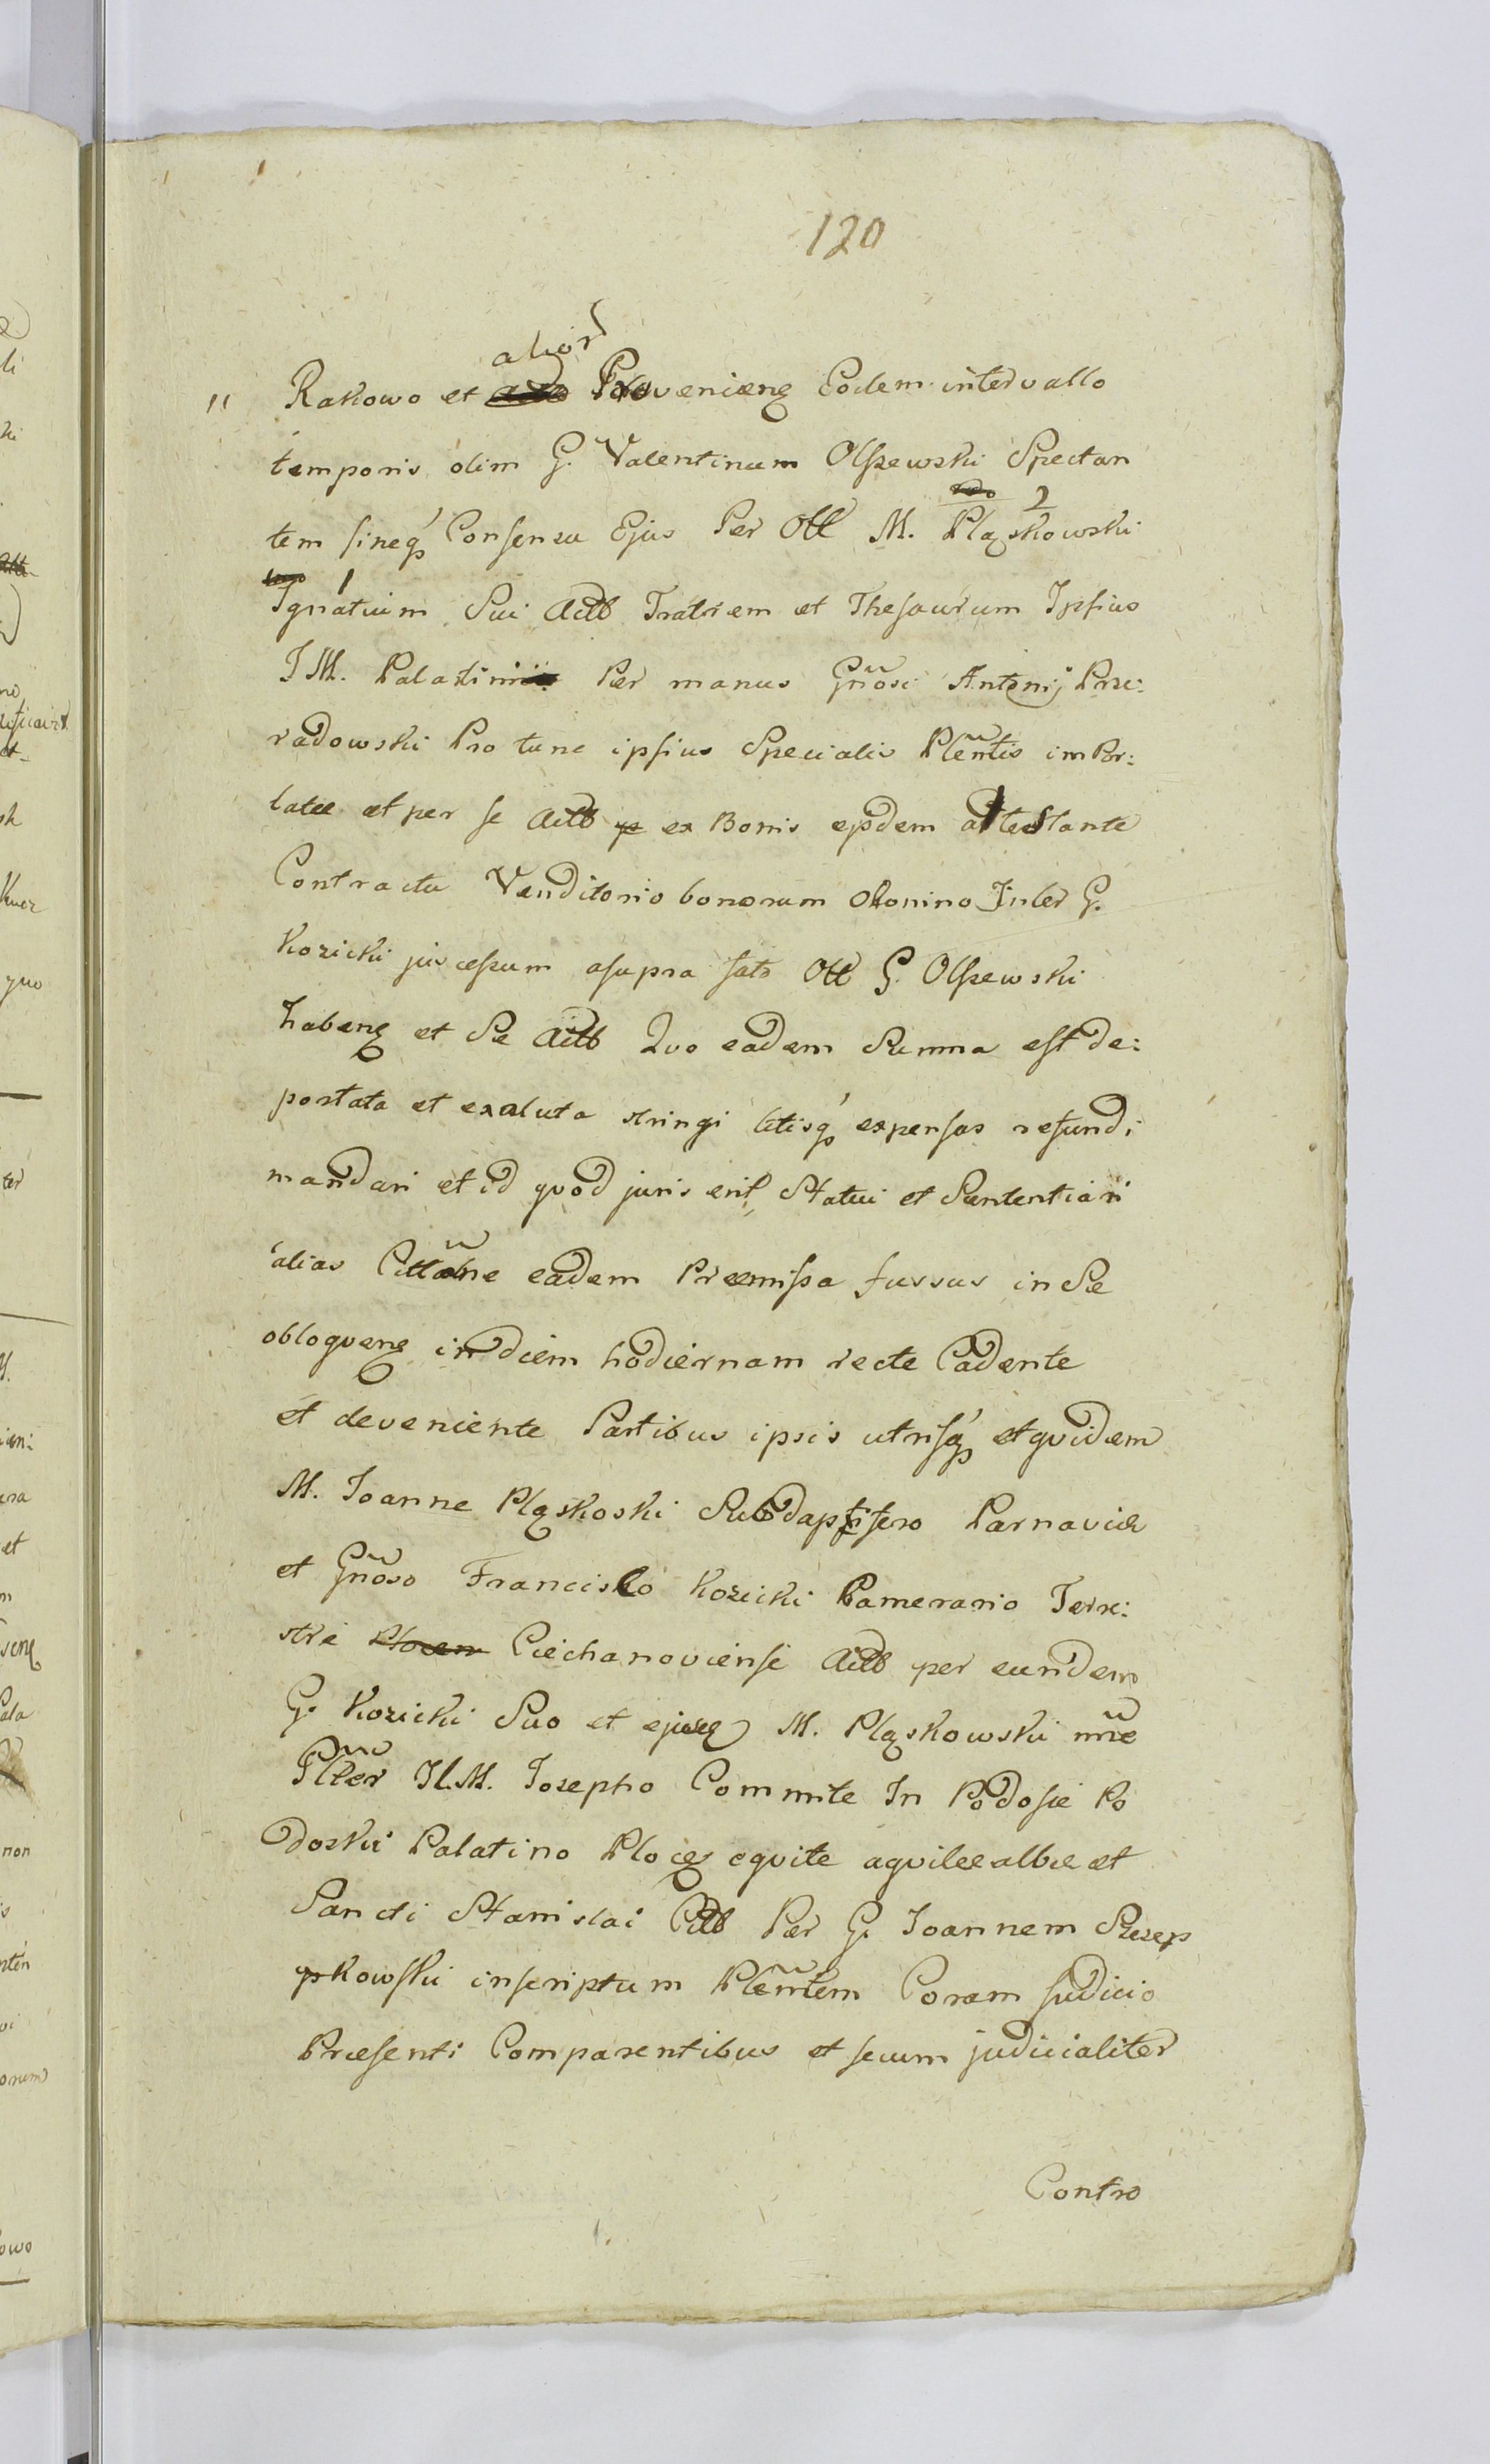 120
alior
" Rakowo et Provenienę Eodem intervallo
temporis olim G. Valentinum Olszewski Spectan
tem sineqꝫ Consensu Ejus Per Ott M. Pląskowski 2
1 Ignatium Sui Actb Fratrem et Thesaurum Ipsius
JM. Palatini Per manus Gnosi Antonij Prze:
radowski Pro tunc ipsius Specialis Plentis impor:
tatæ et per se Actb ex Bonis ejsdem attestante
Contractu Venditorio bonorum Okonino Inter G.
Kozicki ac asupra fato Ott G. Olszewski
habenę et Se Actb Quo eadem Summa est de:
portata et exoluta stringi litisqꝫ expensas refundi
mandari et id quod juris erit Statui et Sententiari
alias Cittõne eadem Præmissa fusius in Se
obloquenę in diem hodiernam recte Cadente
et deveniente Partibus ipsis utrisqꝫ et quidem
M. Joanne Pląskoski Subdapifero Parnaviæ
et Gnoso Francisco Kozicki Camerario Terre:
stri Ciechanoviensi Actb per eundem
G. Kozicki Suo et ejusdę M. Pląskowski nne
Plter Jl.M. Josepho Commite In Podosie Po
doski Palatino Plocę equite aquilæ albæ et
Sancti Stanislai Citt Per G. Joannem Szczep
kowski inscriptum Plentem Coram Judicio
Præsenti Comparentibus et secum judicialiter
Contro